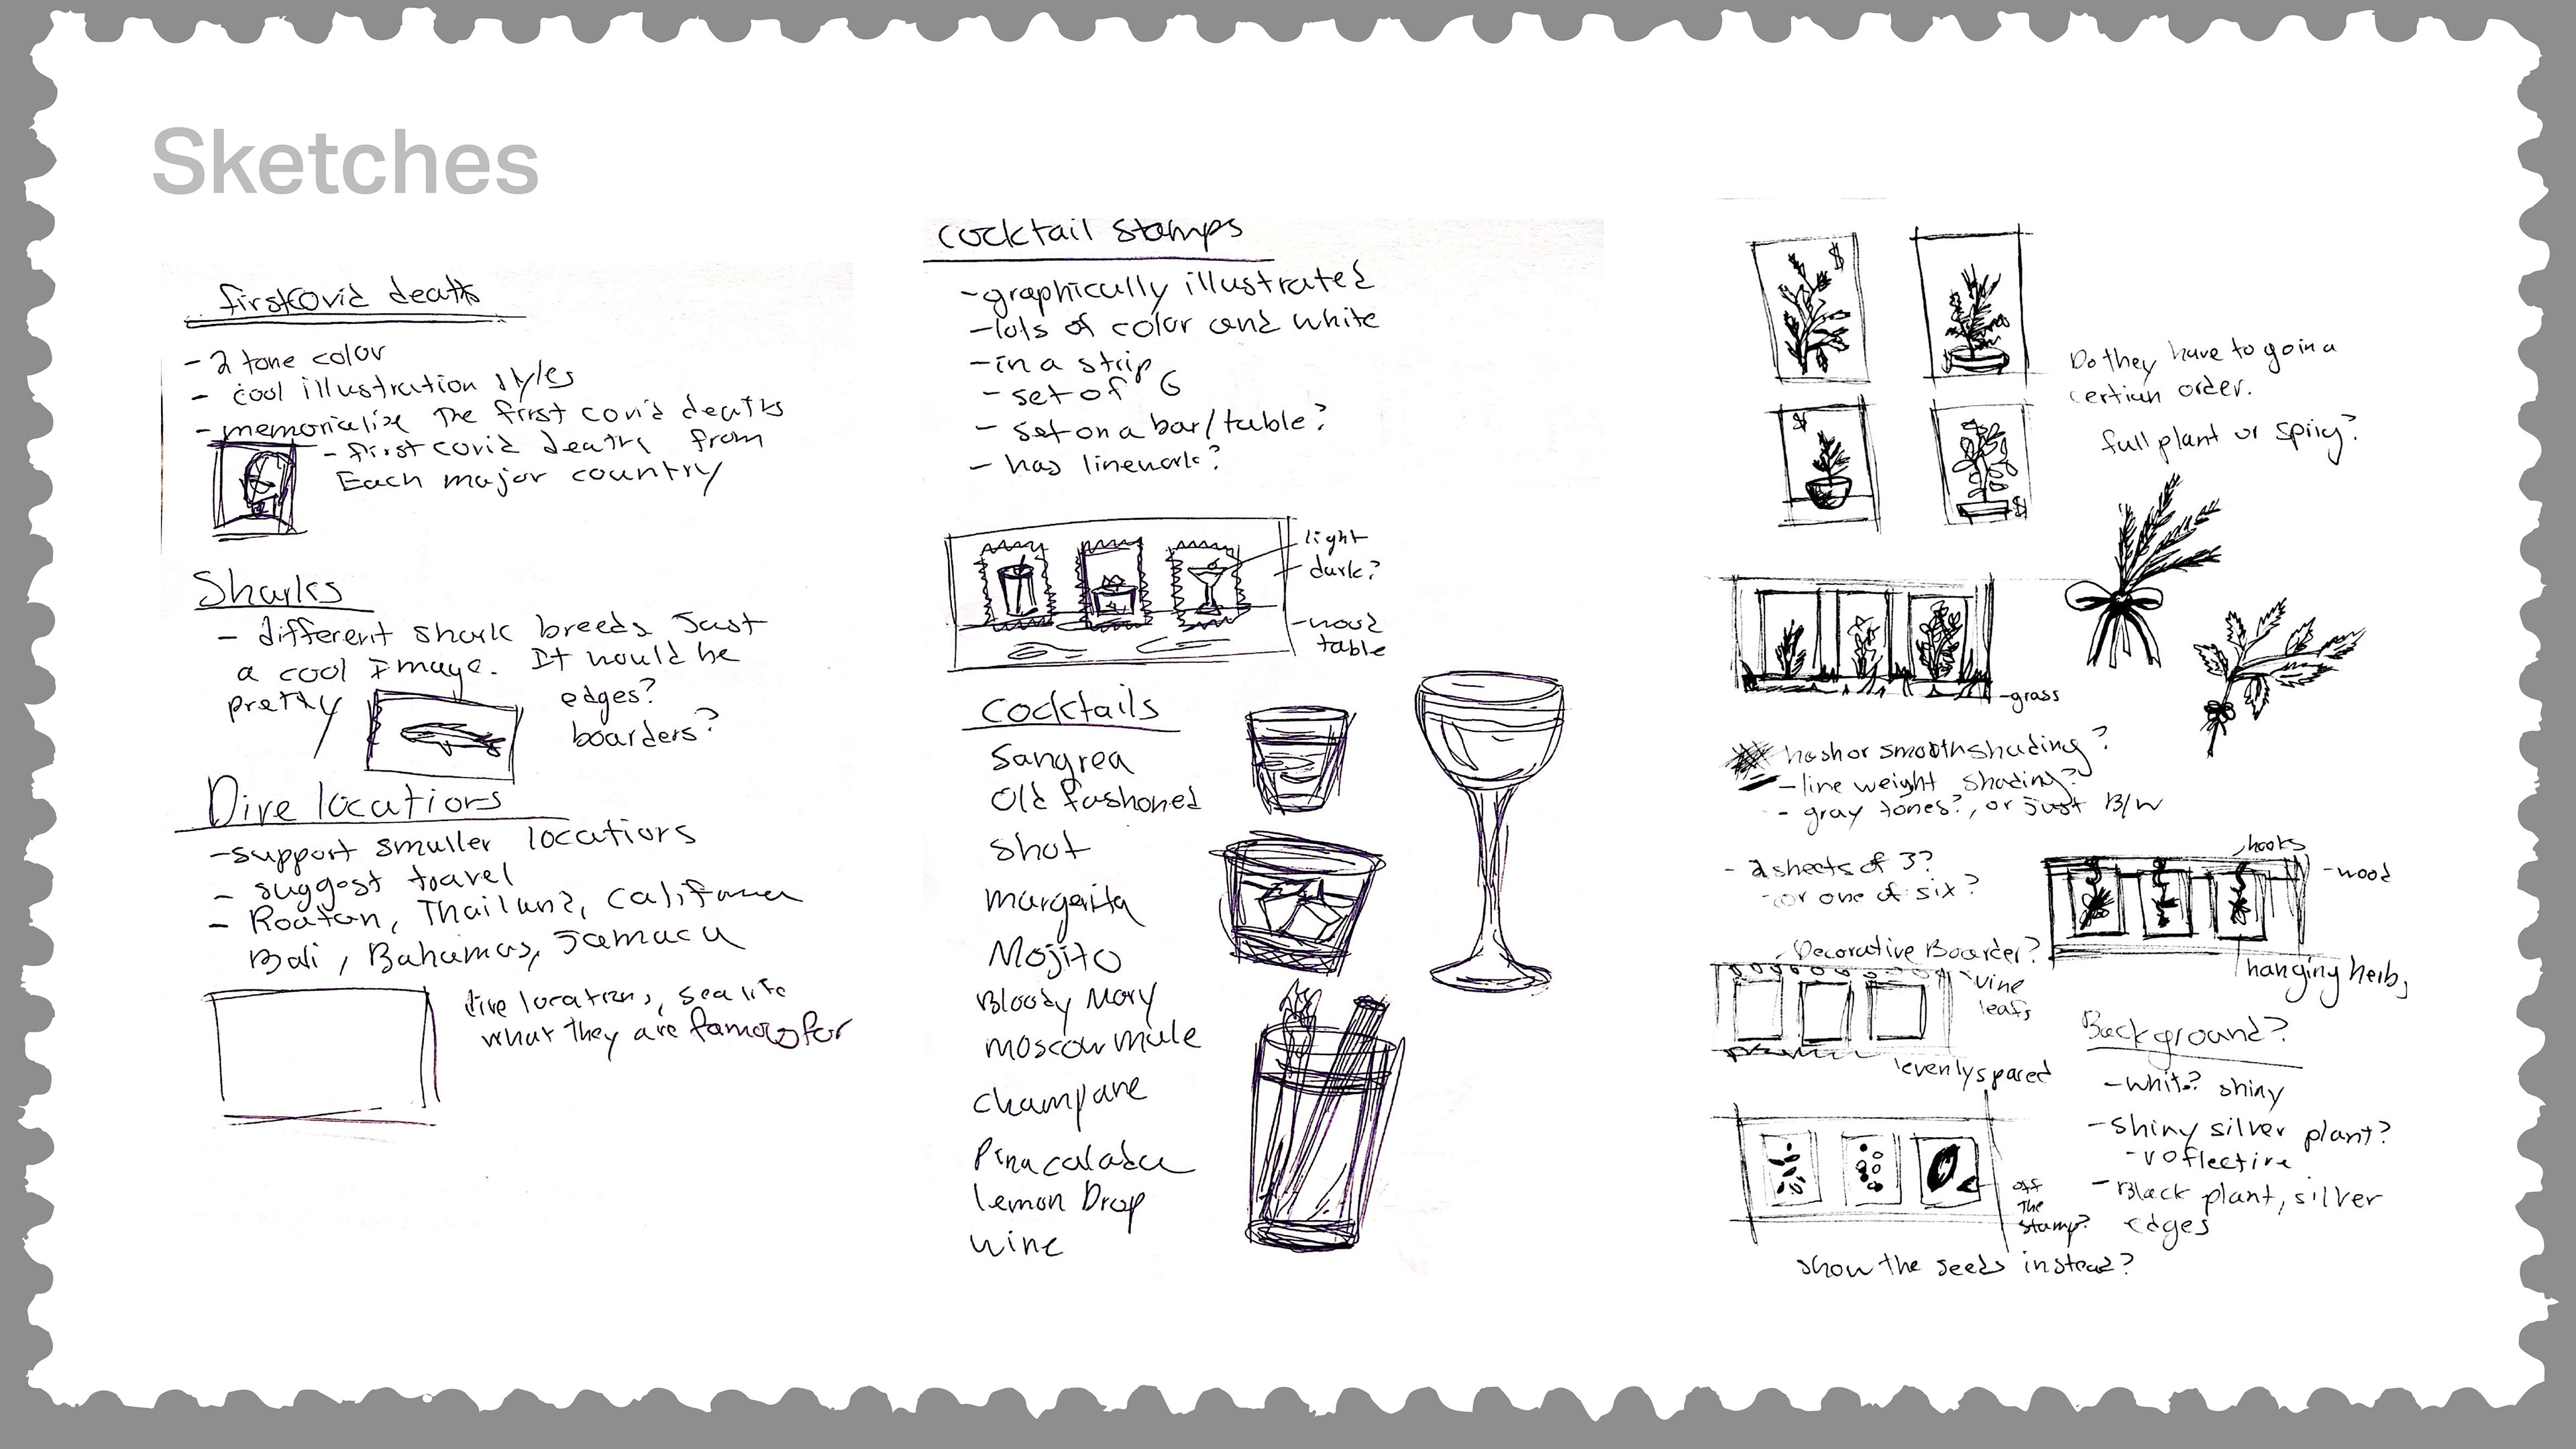 Sketches
first covid deaths
- 2 tone color
- cool illustration styles
- memorialize the first covid deaths
- first covid deaths from
Each major country
Sharks
- different shark breeds Just
a cool Image. It would be
pretty
edges?
boarders?
Dive locations
- support smaller locations
- suggest travel
- Roatan, Thailand, California
Bali, Bahamas, Jamaca
dive locations, sea life
what they are famous for
cocktail stamps
- graphically illustrated
- lots of color and white
- in a strip
- set of 6
- set on a bar/table?
- has linework?
light
dark?
- wood
table
cocktails
Sangrea
Old fashoned
Shot
margarita
Mojito
Bloody Mary
moscow mule
champane
Pina calada
lemon Drop
wine
$
$
$
Do they have to go in a
certian order.
full plant or sprig?
- grass
hash or smooth shading?
- line weight shading?
- gray tones?, or just B/W
- 2 sheets of 3?
- or one of six?
hooks
- wood
hanging herbs
Decorative Boarder?
vine
leafs
evenly spaced
Background?
- white? shiny
- shiny silver plant?
- reflective
- Black plant, silver
edges
off
the
stamp?
show the seeds instead?